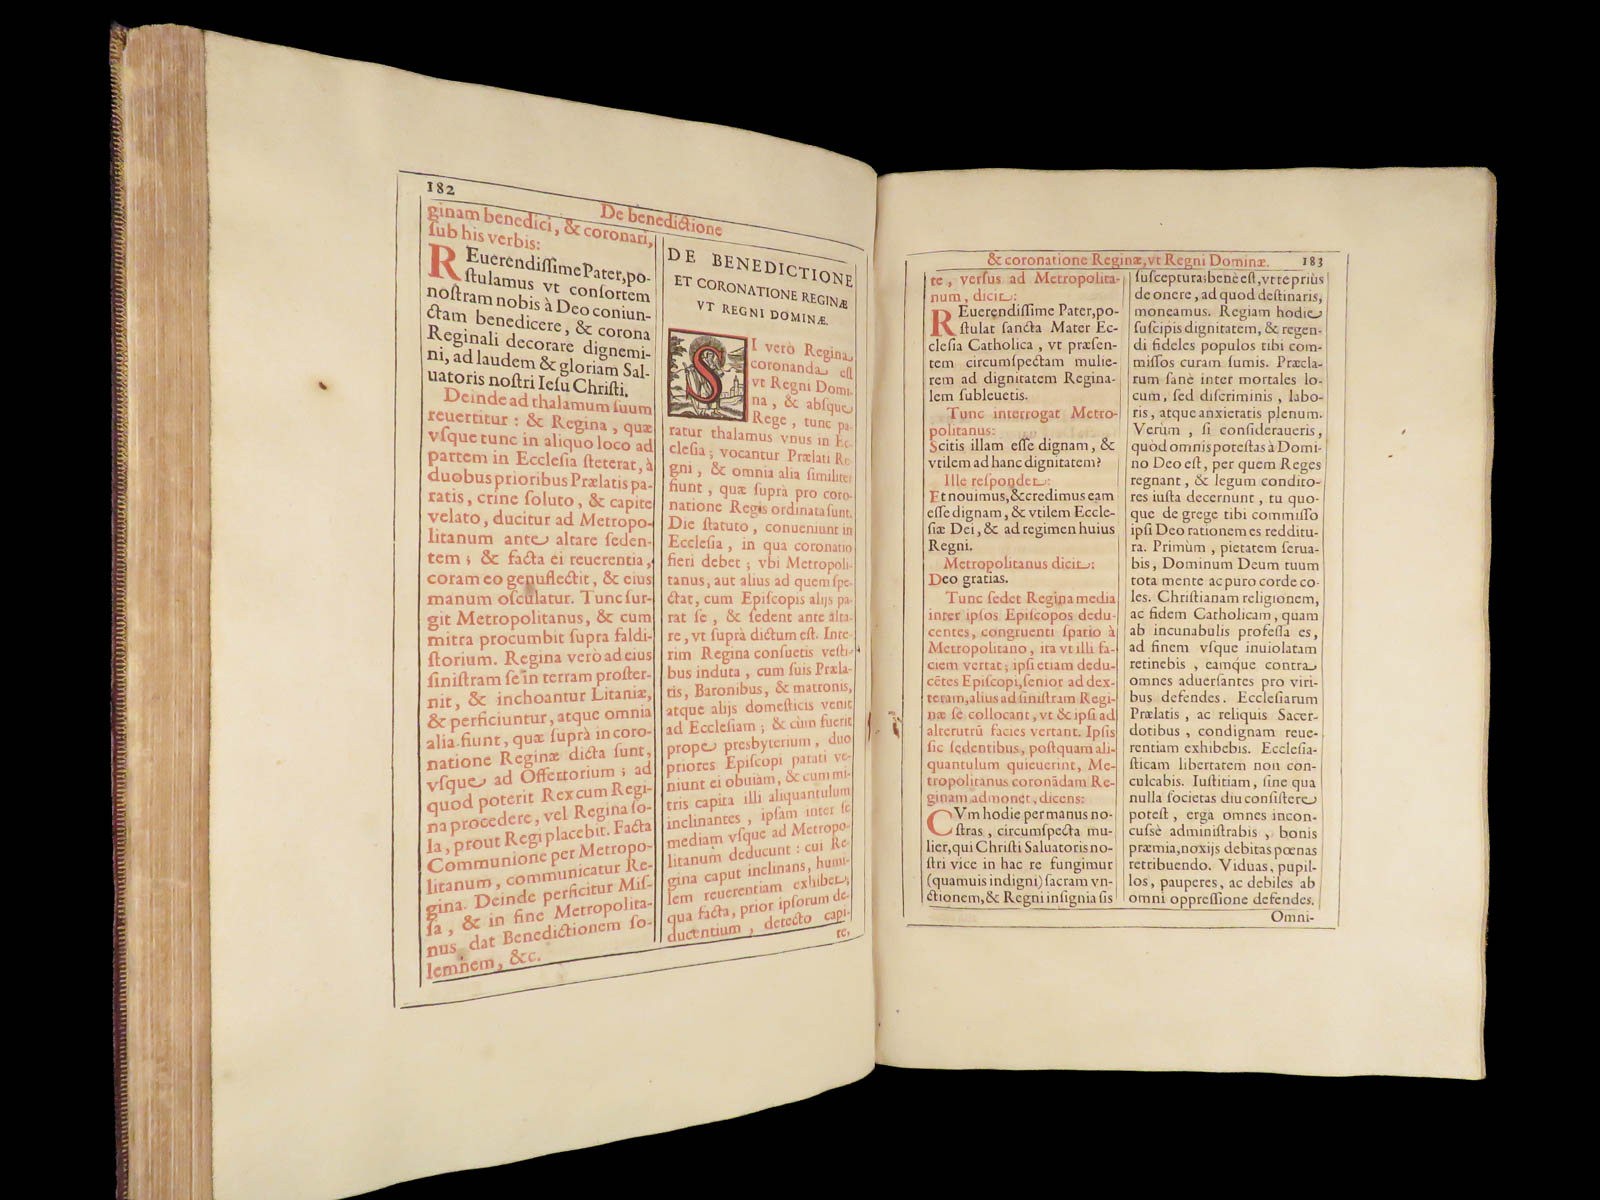 182
De benedictione
ginam benedici, & coronari,
ſub his verbis:
REuerendiſſime Pater, po-
ſtulamus vt conſortem
noſtram nobis à Deo coniun-
ctam benedicere, & corona
Reginali decorare dignemi-
ni, ad laudem & gloriam Sal-
uatoris noſtri Ieſu Chriſti.
Deinde ad thalamum ſuum
reuertitur: & Regina, quæ
vſque tunc in aliquo loco ad
partem in Eccleſia ſteterat, à
duobus prioribus Prælatis pa-
ratis, crine ſoluto, & capite
velato, ducitur ad Metropo-
litanum ante altare ſeden-
tem; & facta ei reuerentia,
coram eo genuflectit, & eius
manum oſculatur. Tunc ſur-
git Metropolitanus, & cum
mitra procumbit ſupra faldi-
ſtorium. Regina verò ad eius
ſiniſtram ſe in terram proſter-
nit, & inchoantur Litaniæ,
& perficiuntur, atque omnia
alia fiunt, quæ ſuprà in coro-
natione Reginæ dicta ſunt,
vſque ad Offertorium; ad
quod poterit Rex cum Regi-
na procedere, vel Regina ſo-
la, prout Regi placebit. Facta
Communione per Metropo-
litanum, communicatur Re-
gina. Deinde perficitur Miſ-
ſa, & in fine Metropolita-
nus dat Benedictionem ſo-
lemnem, &c.
DE BENEDICTIONE
ET CORONATIONE REGINÆ
VT REGNI DOMINÆ.
SI verò Regina
coronanda eſt
vt Regni Domi-
na, & abſque
Rege, tunc pa-
ratur thalamus vnus in Ec-
cleſia; vocantur Prælati Re-
gni, & omnia alia ſimiliter
fiunt, quæ ſuprà pro coro-
natione Regis ordinata ſunt.
Die ſtatuto, conueniunt in
Eccleſia, in qua coronatio
fieri debet; vbi Metropoli-
tanus, aut alius ad quem ſpe-
ctat, cum Epiſcopis alijs pa-
rat ſe, & ſedent ante alta-
re, vt ſuprà dictum eſt. Inte-
rim Regina conſuetis veſti-
bus induta, cum ſuis Præla-
tis, Baronibus, & matronis,
atque alijs domeſticis venit
ad Eccleſiam; & cùm fuerit
prope presbyterium, duo
priores Epiſcopi parati ve-
niunt ei obuiàm, & cum mi-
tris capita illi aliquantulum
inclinantes, ipſam inter ſe
mediam vſque ad Metropo-
litanum deducunt: cui Re-
gina caput inclinans, humi-
lem reuerentiam exhibet;
qua facta, prior ipſorum de-
ducentium, detecto capi-
te,
& coronatione Reginæ, vt Regni Dominæ.
183
te, verſus ad Metropolita-
num, dicit:
REuerendiſſime Pater, po-
ſtulat ſancta Mater Ec-
cleſia Catholica, vt præſen-
tem circumſpectam mulie-
rem ad dignitatem Regina-
lem ſubleuetis.
Tunc interrogat Metro-
politanus:
Scitis illam eſſe dignam, &
vtilem ad hanc dignitatem?
Ille reſpondet:
Et nouimus, & credimus eam
eſſe dignam, & vtilem Eccle-
ſiæ Dei, & ad regimen huius
Regni.
Metropolitanus dicit:
Deo gratias.
Tunc ſedet Regina media
inter ipſos Epiſcopos dedu-
centes, congruenti ſpatio à
Metropolitano, ita vt illi fa-
ciem vertat; ipſi etiam dedu-
cẽtes Epiſcopi, ſenior ad dex-
teram, alius ad ſiniſtram Regi-
næ ſe collocant, vt & ipſi ad
alterutrũ facies vertant. Ipſis
ſic ſedentibus, poſtquam ali-
quantulum quieuerint, Me-
tropolitanus coronãdam Re-
ginam admonet, dicens:
CVm hodie per manus no-
ſtras, circumſpecta mu-
lier, qui Chriſti Saluatoris no-
ſtri vice in hac re fungimur
(quamuis indigni) ſacram vn-
ctionem, & Regni inſignia ſis
ſuſceptura: benè eſt, vt te priùs
de onere, ad quod deſtinaris,
moneamus. Regiam hodie
ſuſcipis dignitatem, & regen-
di fideles populos tibi com-
miſſos curam ſumis. Præcla-
rum ſanè inter mortales lo-
cum, ſed diſcriminis, labo-
ris, atque anxietatis plenum.
Verùm, ſi conſideraueris,
quòd omnis poteſtas à Domi-
no Deo eſt, per quem Reges
regnant, & legum condito-
res iuſta decernunt, tu quo-
que de grege tibi commiſſo
ipſi Deo rationem es redditu-
ra. Primùm, pietatem ſerua-
bis, Dominum Deum tuum
tota mente ac puro corde co-
les. Chriſtianam religionem,
ac fidem Catholicam, quam
ab incunabulis profeſſa es,
ad finem vſque inuiolatam
retinebis, eamque contra
omnes aduerſantes pro viri-
bus defendes. Eccleſiarum
Prælatis, ac reliquis Sacer-
dotibus, condignam reue-
rentiam exhibebis. Eccleſia-
ſticam libertatem non con-
culcabis. Iuſtitiam, ſine qua
nulla ſocietas diu conſiſtere
poteſt, erga omnes incon-
cuſſè adminiſtrabis, bonis
præmia, noxijs debitas pœnas
retribuendo. Viduas, pupil-
los, pauperes, ac debiles ab
omni oppreſſione defendes.
Omni-